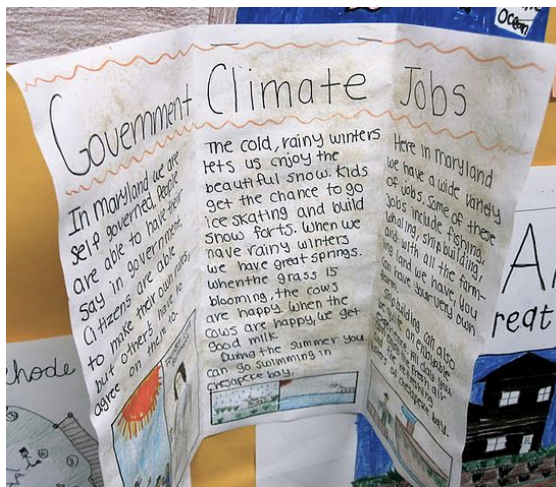 Ocean
Government
In Maryland we are
self governed. People
are able to have their
say in government.
Citizens are able
to make their own rules,
but others have to
agree on them to.
Climate
The cold, rainy winters
lets us enjoy the
beautiful snow. Kids
get the chance to go
ice skating and build
snow forts. When we
have rainy winters
we have great springs.
when the grass is
blooming, the cows
are happy. when the
cows are happy, we get
good milk.
During the summer you
can go swimming in
chesapeake bay.
Jobs
Here in maryland
we have a wide variety
of jobs. Some of these
jobs include fishing,
whaling, ship building,
and with all the farm-
ing land we have, you
can have your very own
farm.
Ship building can also
be quite an enjoyable
All day you
the fresh air
refreshing
of chesapeake bay.
hode
A
reat